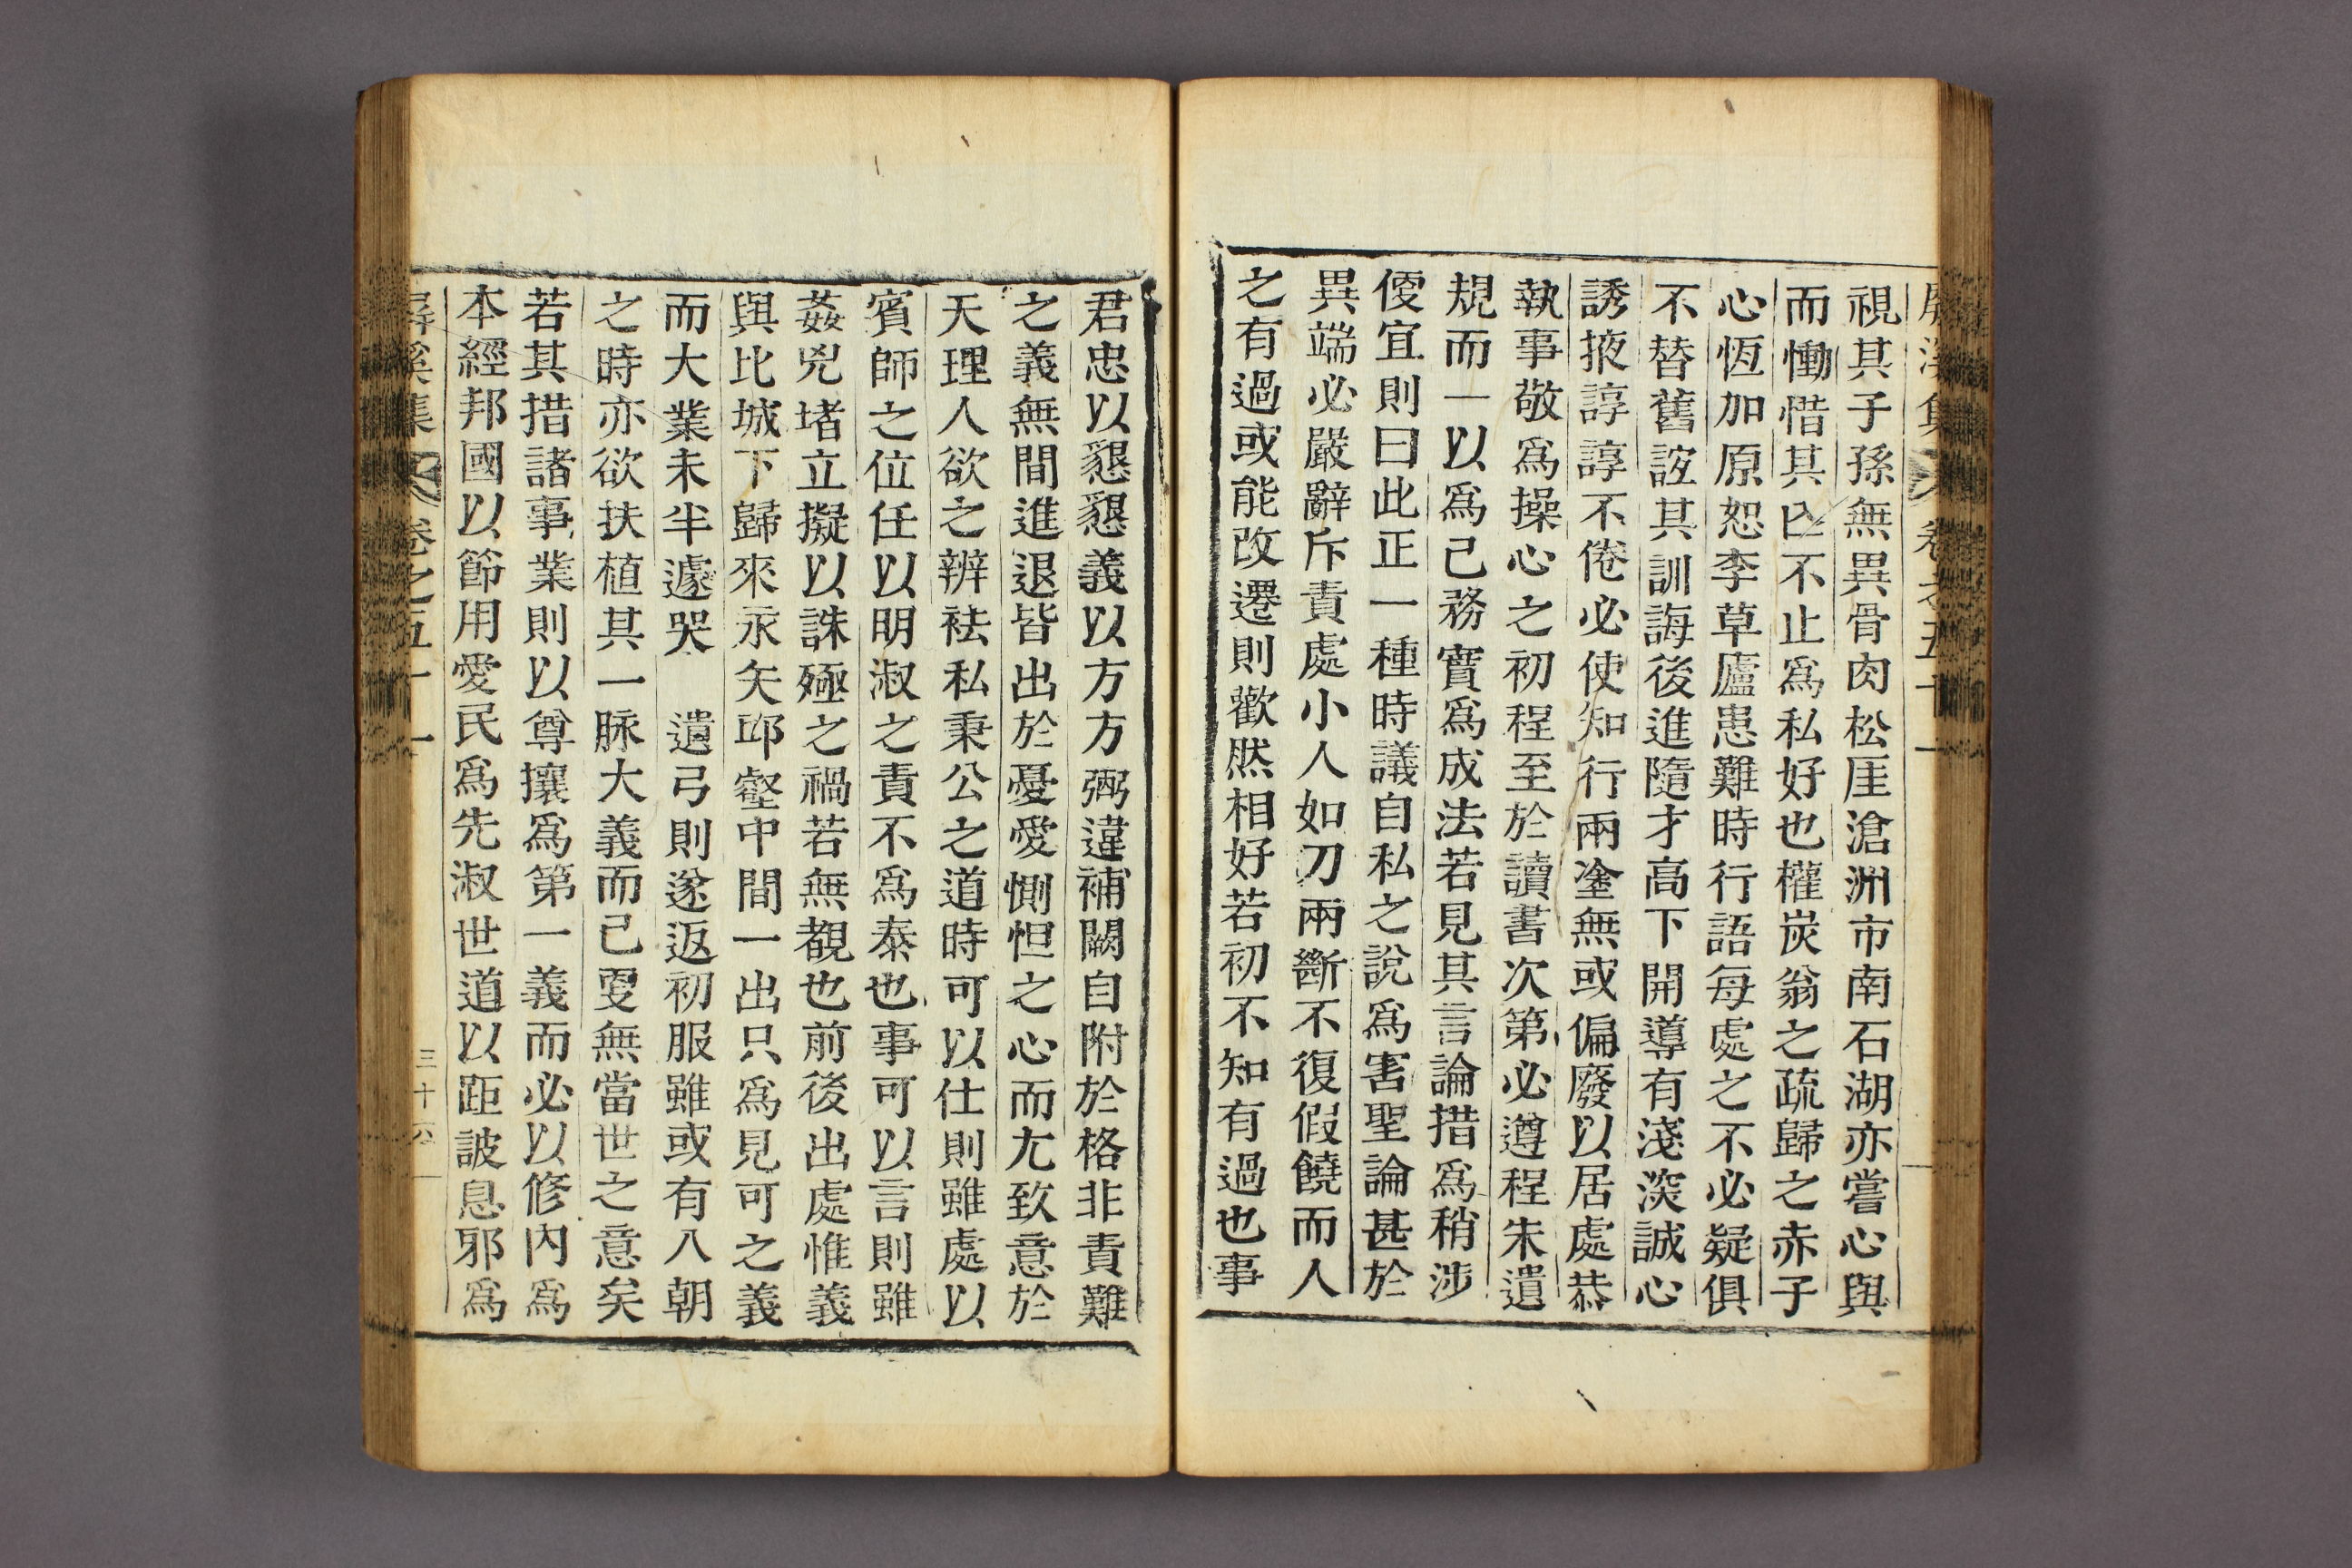 屛溪集 卷之五十一
視其子孫無異骨肉松厓滄洲市南石湖亦嘗心與
而慟惜其亾不止爲私好也權炭翁之疏歸之赤子
心恆加原恕李草廬患難時行語每處之不必疑俱
不替舊誼其訓誨後進隨才高下開導有淺深誠心
誘掖諄諄不倦必使知行兩塗無或偏廢以居處恭
執事敬爲操心之初程至於讀書次第必遵程朱遺
規而一以爲己務實爲成法若見其言論措爲稍涉
便宜則曰此正一種時議自私之說爲害聖論甚於
異端必嚴辭斥責處小人如刀兩斷不復假饒而人
之有過或能改遷則歡然相好若初不知有過也事
君忠以懇懇義以方方弼違補闕自附於格非責難
之義無間進退皆出於憂愛惻怛之心而尤致意於
天理人欲之辨袪私秉公之道時可以仕則雖處以
賓師之位任以明淑之責不爲泰也事可以言則雖
姦兇堵立擬以誅殛之禍若無覩也前後出處惟義
與比城下歸來永矢邱壑中間一出只爲見可之義
而大業未半遽哭 遺弓則遂返初服雖或有八朝
之時亦欲扶植其一脉大義而已更無當世之意矣
若其措諸事業則以尊攘爲第一義而必以修內爲
本經邦國以節用愛民爲先淑世道以距詖息邪爲
屛溪集 卷之五十一 三十六